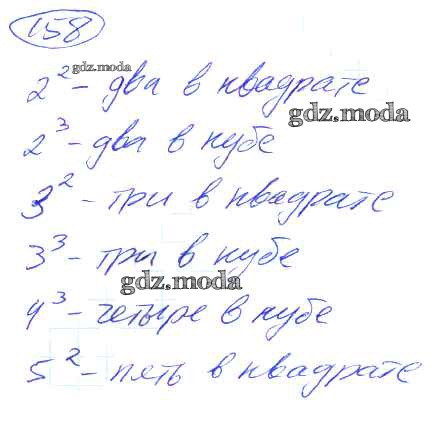 158
2² - два в квадрате
gdz.moda
gdz.moda
2³ - два в кубе
3² - три в квадрате
3³ - три в кубе
gdz.moda
4³ - четыре в кубе
5² - пять в квадрате